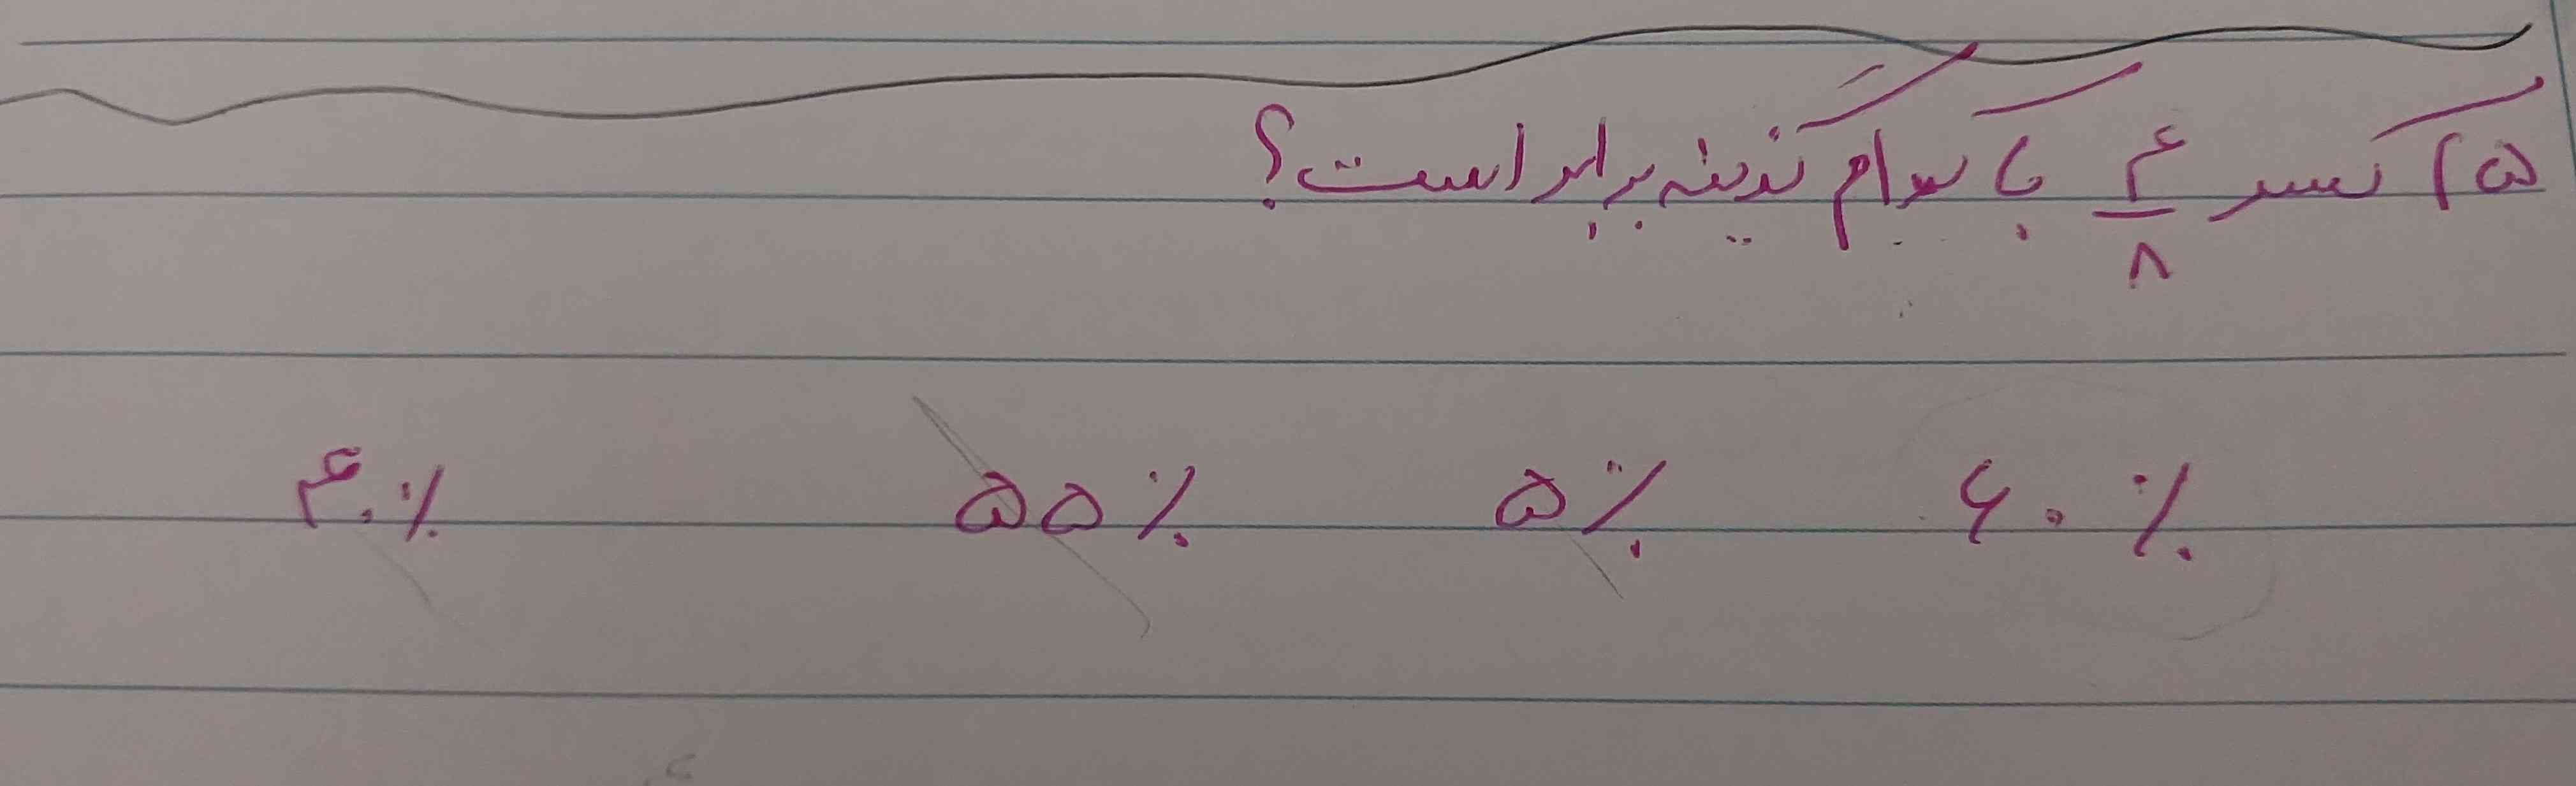 ۵) کسر ۴/۸ با کدام گزینه برابر است؟
۶۰٪ ۵٪ ۵۵٪ ۴۰٪